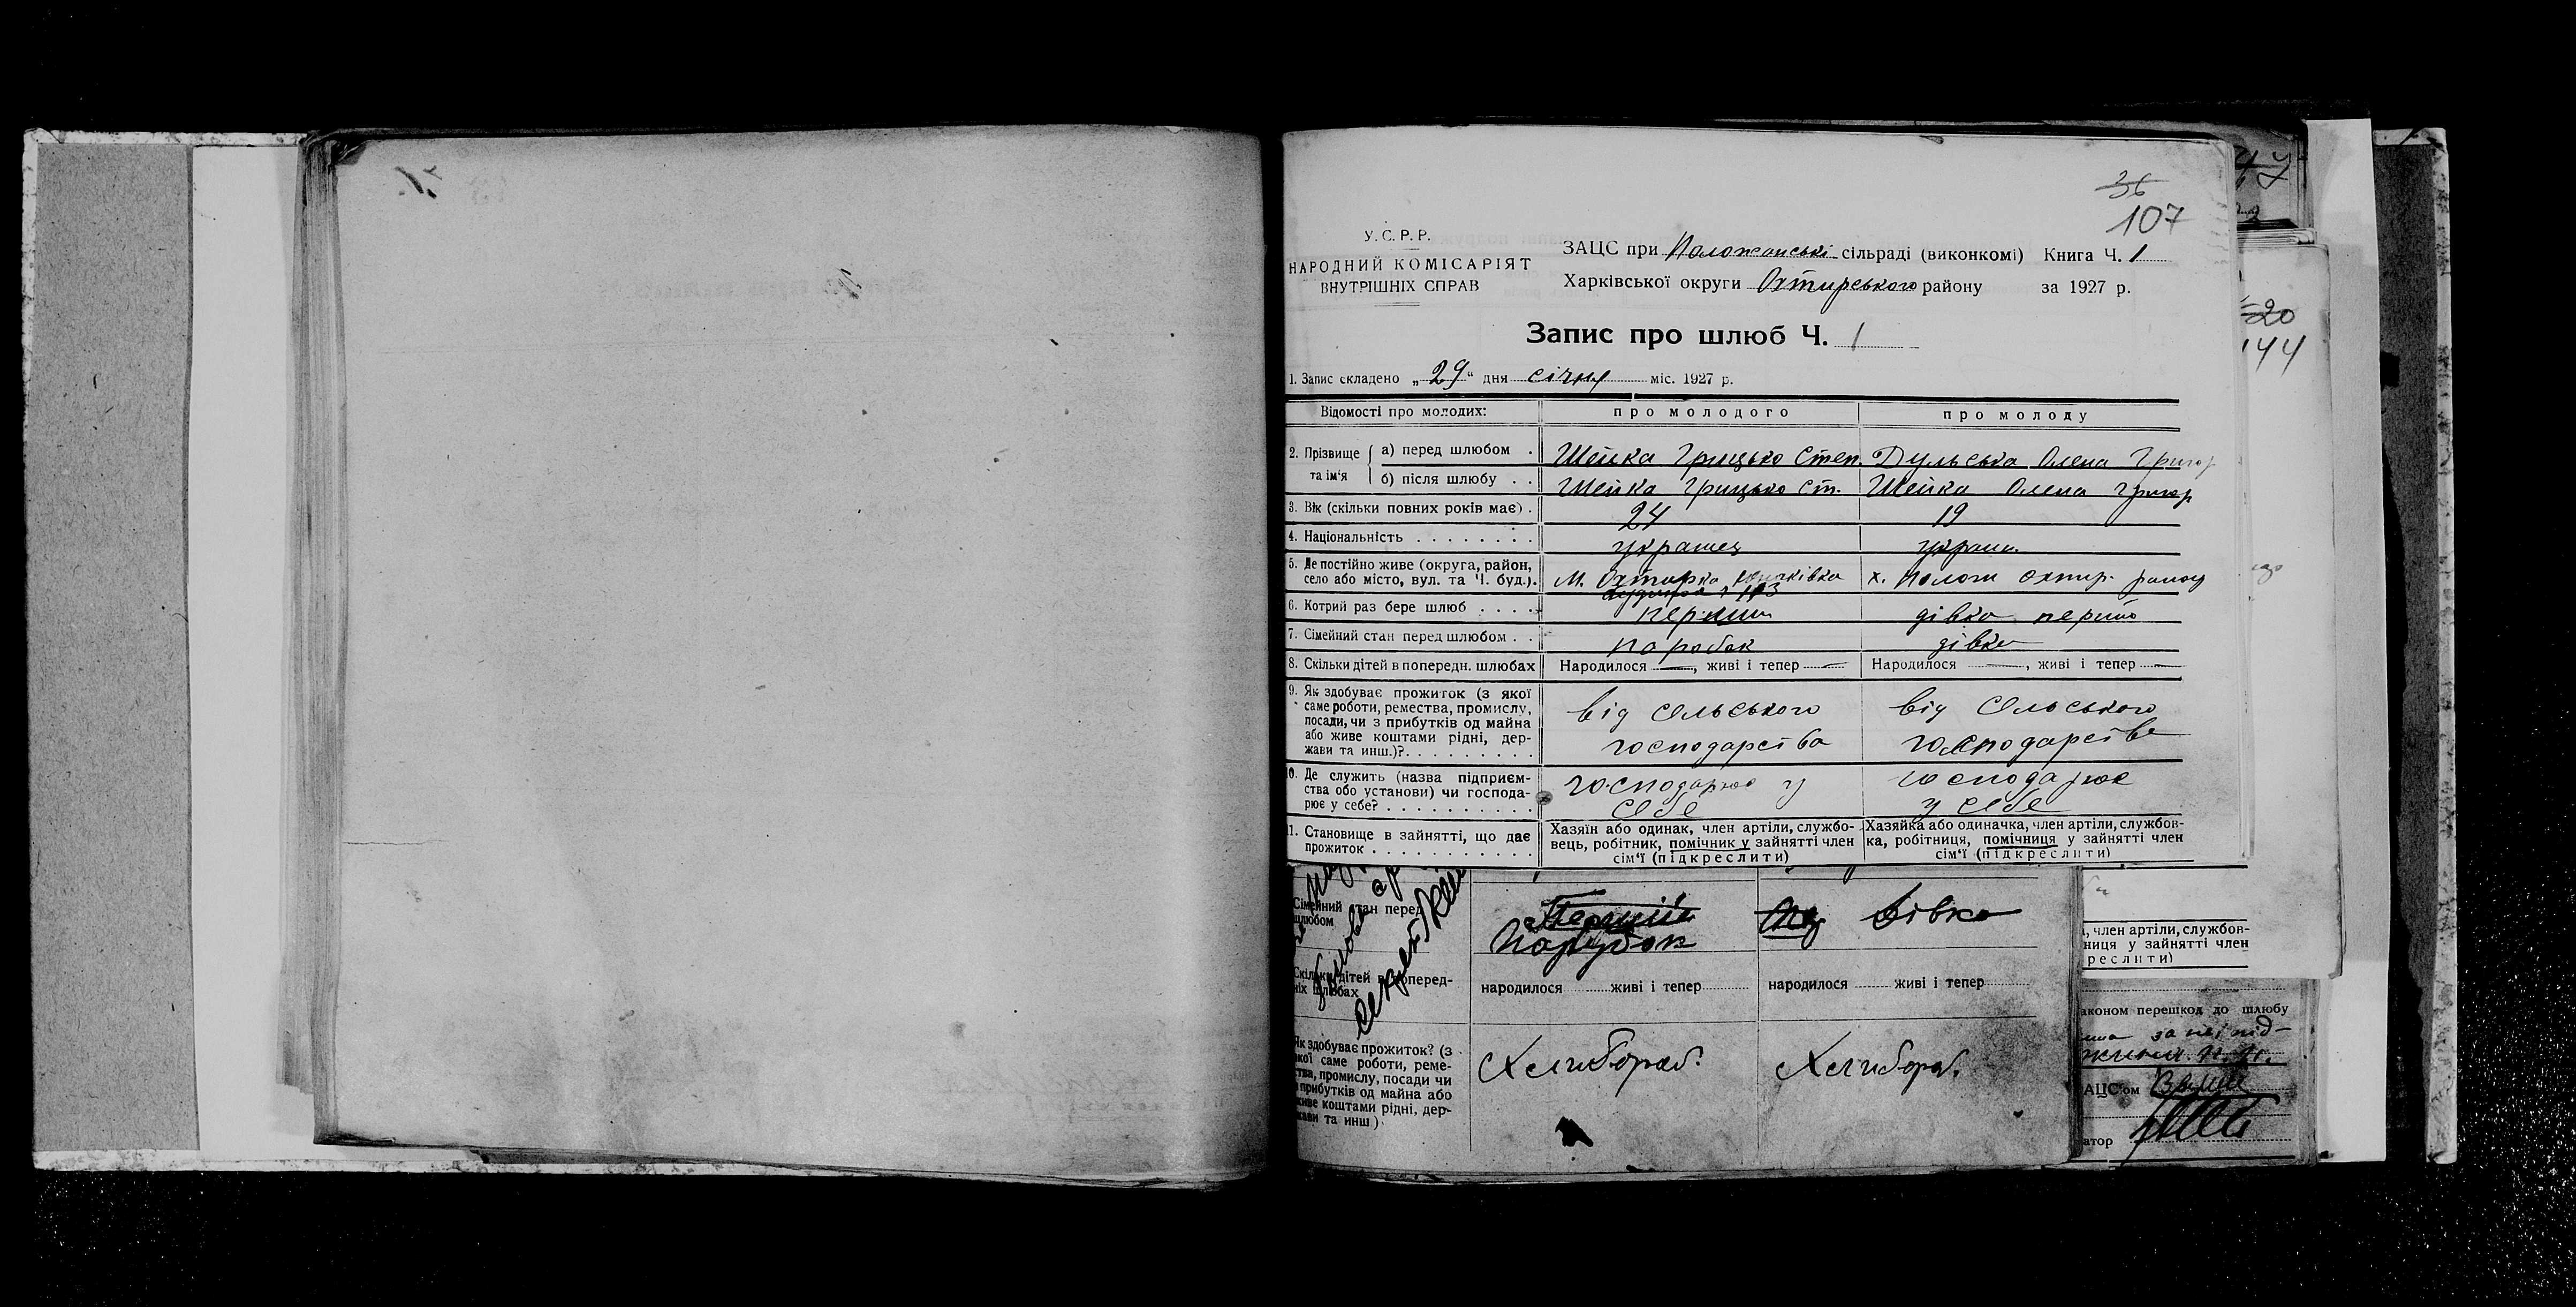 36
107
У.С.Р.Р.
НАРОДНИЙ КОМІСАРІЯТ
ВНУТРІШНІХ СПРАВ
ЗАЦС при Положанські сільраді (виконкомі) Книга Ч. 1
Харківської округи Охтирського району за 1927 р.
Запис про шлюб Ч. 1
1. Запис складено „29“ дня січня міс. 1927 р.
Відомості про молодих: про молодого про молоду
2. Прізвище та ім'я
а) перед шлюбом . Шейка Грицько Степ. Дульська Олена Григор
б) після шлюбу . . Шейка Грицько Ст. Шейка Олена Григор
3. Вік (скільки повних років має) . 24 19
4. Національність . . . . . . . . українец україн.
5. Де постійно живе (округа, район,
село або місто, вул. та Ч. буд.). м. Охтирка х. Положи охтир. району
113
6. Котрий раз бере шлюб . . . . перший дівка перший
7. Сімейний стан перед шлюбом . . паробок дівка
8. Скільки дітей в попередн. шлюбах Народилося —, живі і тепер — Народилося —, живі і тепер —
9. Як здобуває прожиток (з якої
саме роботи, ремества, промислу,
посади, чи з прибутків од майна
або живе коштами рідні, дер-
жави та инш.)?. . . . . . . . .
від сільського
господарства
від сільського
господарства
10. Де служить (назва підприєм-
ства обо установи) чи господа-
рює у себе? . . . . . . . . . .
господарює у
себе
господарює
у себе
11. Становище в зайнятті, що дає
прожиток . . . . . . . . . . .
Хазяїн або одинак, член артіли, службо-
вець, робітник, помічник у зайнятті член
сім'ї (підкреслити)
Хазяйка або одиначка, член артіли, службов-
ка, робітниця, помічниця у зайнятті член
сім'ї (підкреслити)
Сімейний стан перед
шлюбом
Перший
Парубок
Дівка
Скільки дітей в поперед-
ніх шлюбах
народилося живі і тепер народилося живі і тепер
Як здобуває прожиток? (з
якої саме роботи, реме-
ства, промислу, посади чи
прибутків од майна або
живе коштами рідні, дер-
жави та инш )
Хлибораб. Хлибораб.
20
144
, член артіли, службов-
ниця у зайнятті член
реслити)
аконом перешкод до шлюбу
АЦС'ом
атор